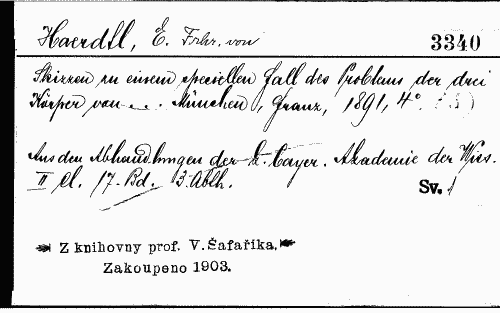 Haerdtl, E. Frhr. von
3340
Skizzen zu einem speciellen Fall des Problems der drei
Körper von ... München, Franz, 1891, 4°.
Aus den Abhandlungen der k. bayer. Akademie der Wiss.
II Cl. 17. Bd. 3. Abth.
Sv. 1
Z knihovny prof. V. Šafaříka.
Zakoupeno 1903.